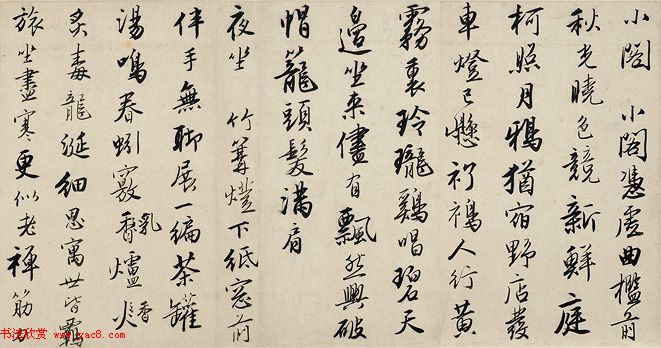 小閣　小閣憑虛曲檻前
秋光曉色競新鮮庭
柯照月鴉猶宿野店發
車燈已懸袯襫人行黃
霧裏玲瓏鷄唱碧天
邊坐来儘有飄然興破
帽籠頭髮滿肩
夜坐　竹篝燈下紙窓前
伴手無聊展一編茶罐
湯鳴春蚓竅乳香爐火香
炙毒龍涎細思寓世皆羈
旅坐盡寒更似老禪筋力
书法欣赏
www.yac8.com